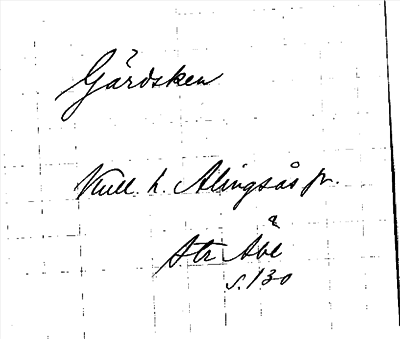 Gårdsken
Kull. h. Alingsås fr.
Str Åbl
s. 130